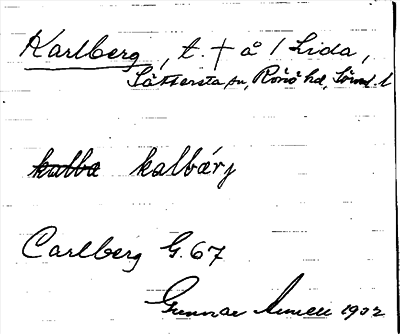 Karlberg, t. † å 1 Lida,
Sättersta sn, Rönö hd, Sörml. l
kalba kalbárj
Carlberg G. 67
Gunnar 1932